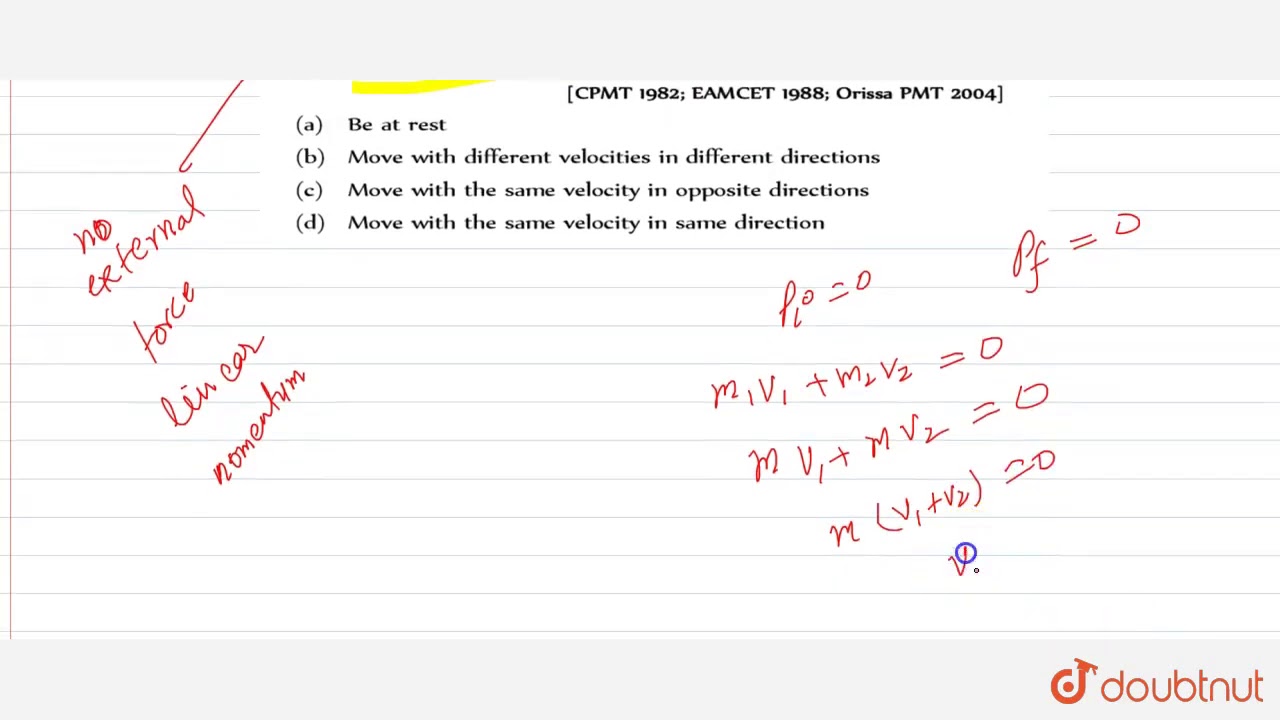 [CPMT 1982; EAMCET 1988; Orissa PMT 2004]
(a) Be at rest
(b) Move with different velocities in different directions
(c) Move with the same velocity in opposite directions
(d) Move with the same velocity in same direction
no
external
force
linear
momentum
Pf = 0
Pi = 0
m₁V₁ + m₂V₂ = 0
m V₁ + m V₂ = 0
m (V₁ + V₂) = 0
V
doubtnut